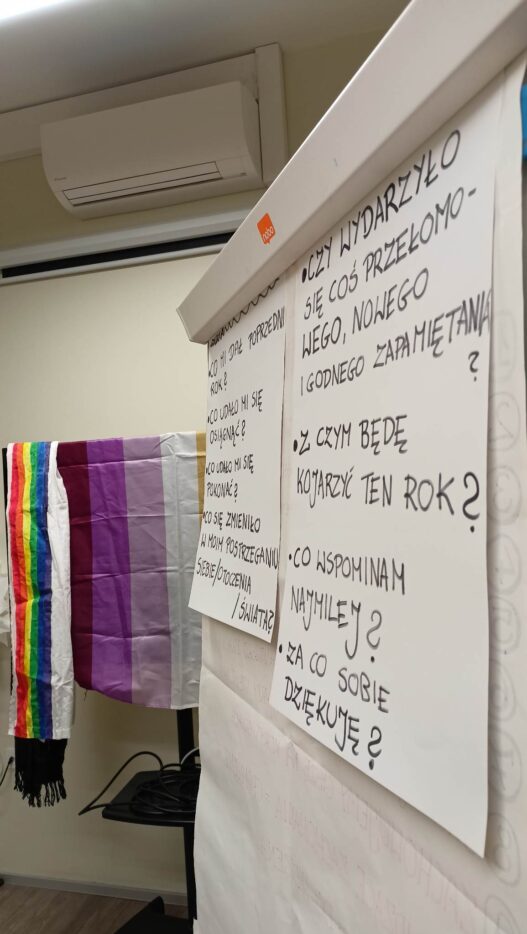 nobo
• CO MI DAŁ POPRZEDNI
ROK?
• CO UDAŁO MI SIĘ
OSIĄGNĄĆ?
• CO UDAŁO MI SIĘ
POKONAĆ?
• CO SIĘ ZMIENIŁO
W MOIM POSTRZEGANIU
SIEBIE/OTOCZENIA
/ŚWIATA?
• CZY WYDARZYŁO
SIĘ COŚ PRZEŁOMO-
WEGO, NOWEGO
I GODNEGO ZAPAMIĘTANIA
?
• Z CZYM BĘDĘ
KOJARZYĆ TEN ROK?
• CO WSPOMINAM
NAJMILEJ?
• ZA CO SOBIE
DZIĘKUJĘ?